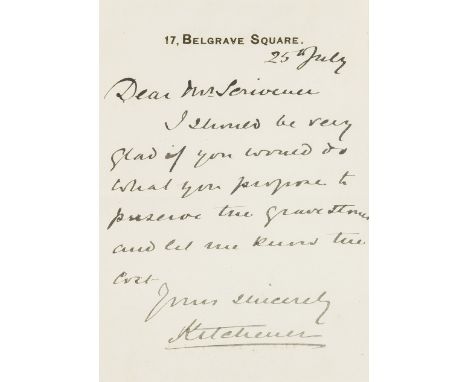 17, BELGRAVE SQUARE.
25th July
Dear Mr. Scrivener
I should be very
glad if you would do
what you propose to
preserve the gravestones
and let me know the
cost
Yours sincerely
Kitchener